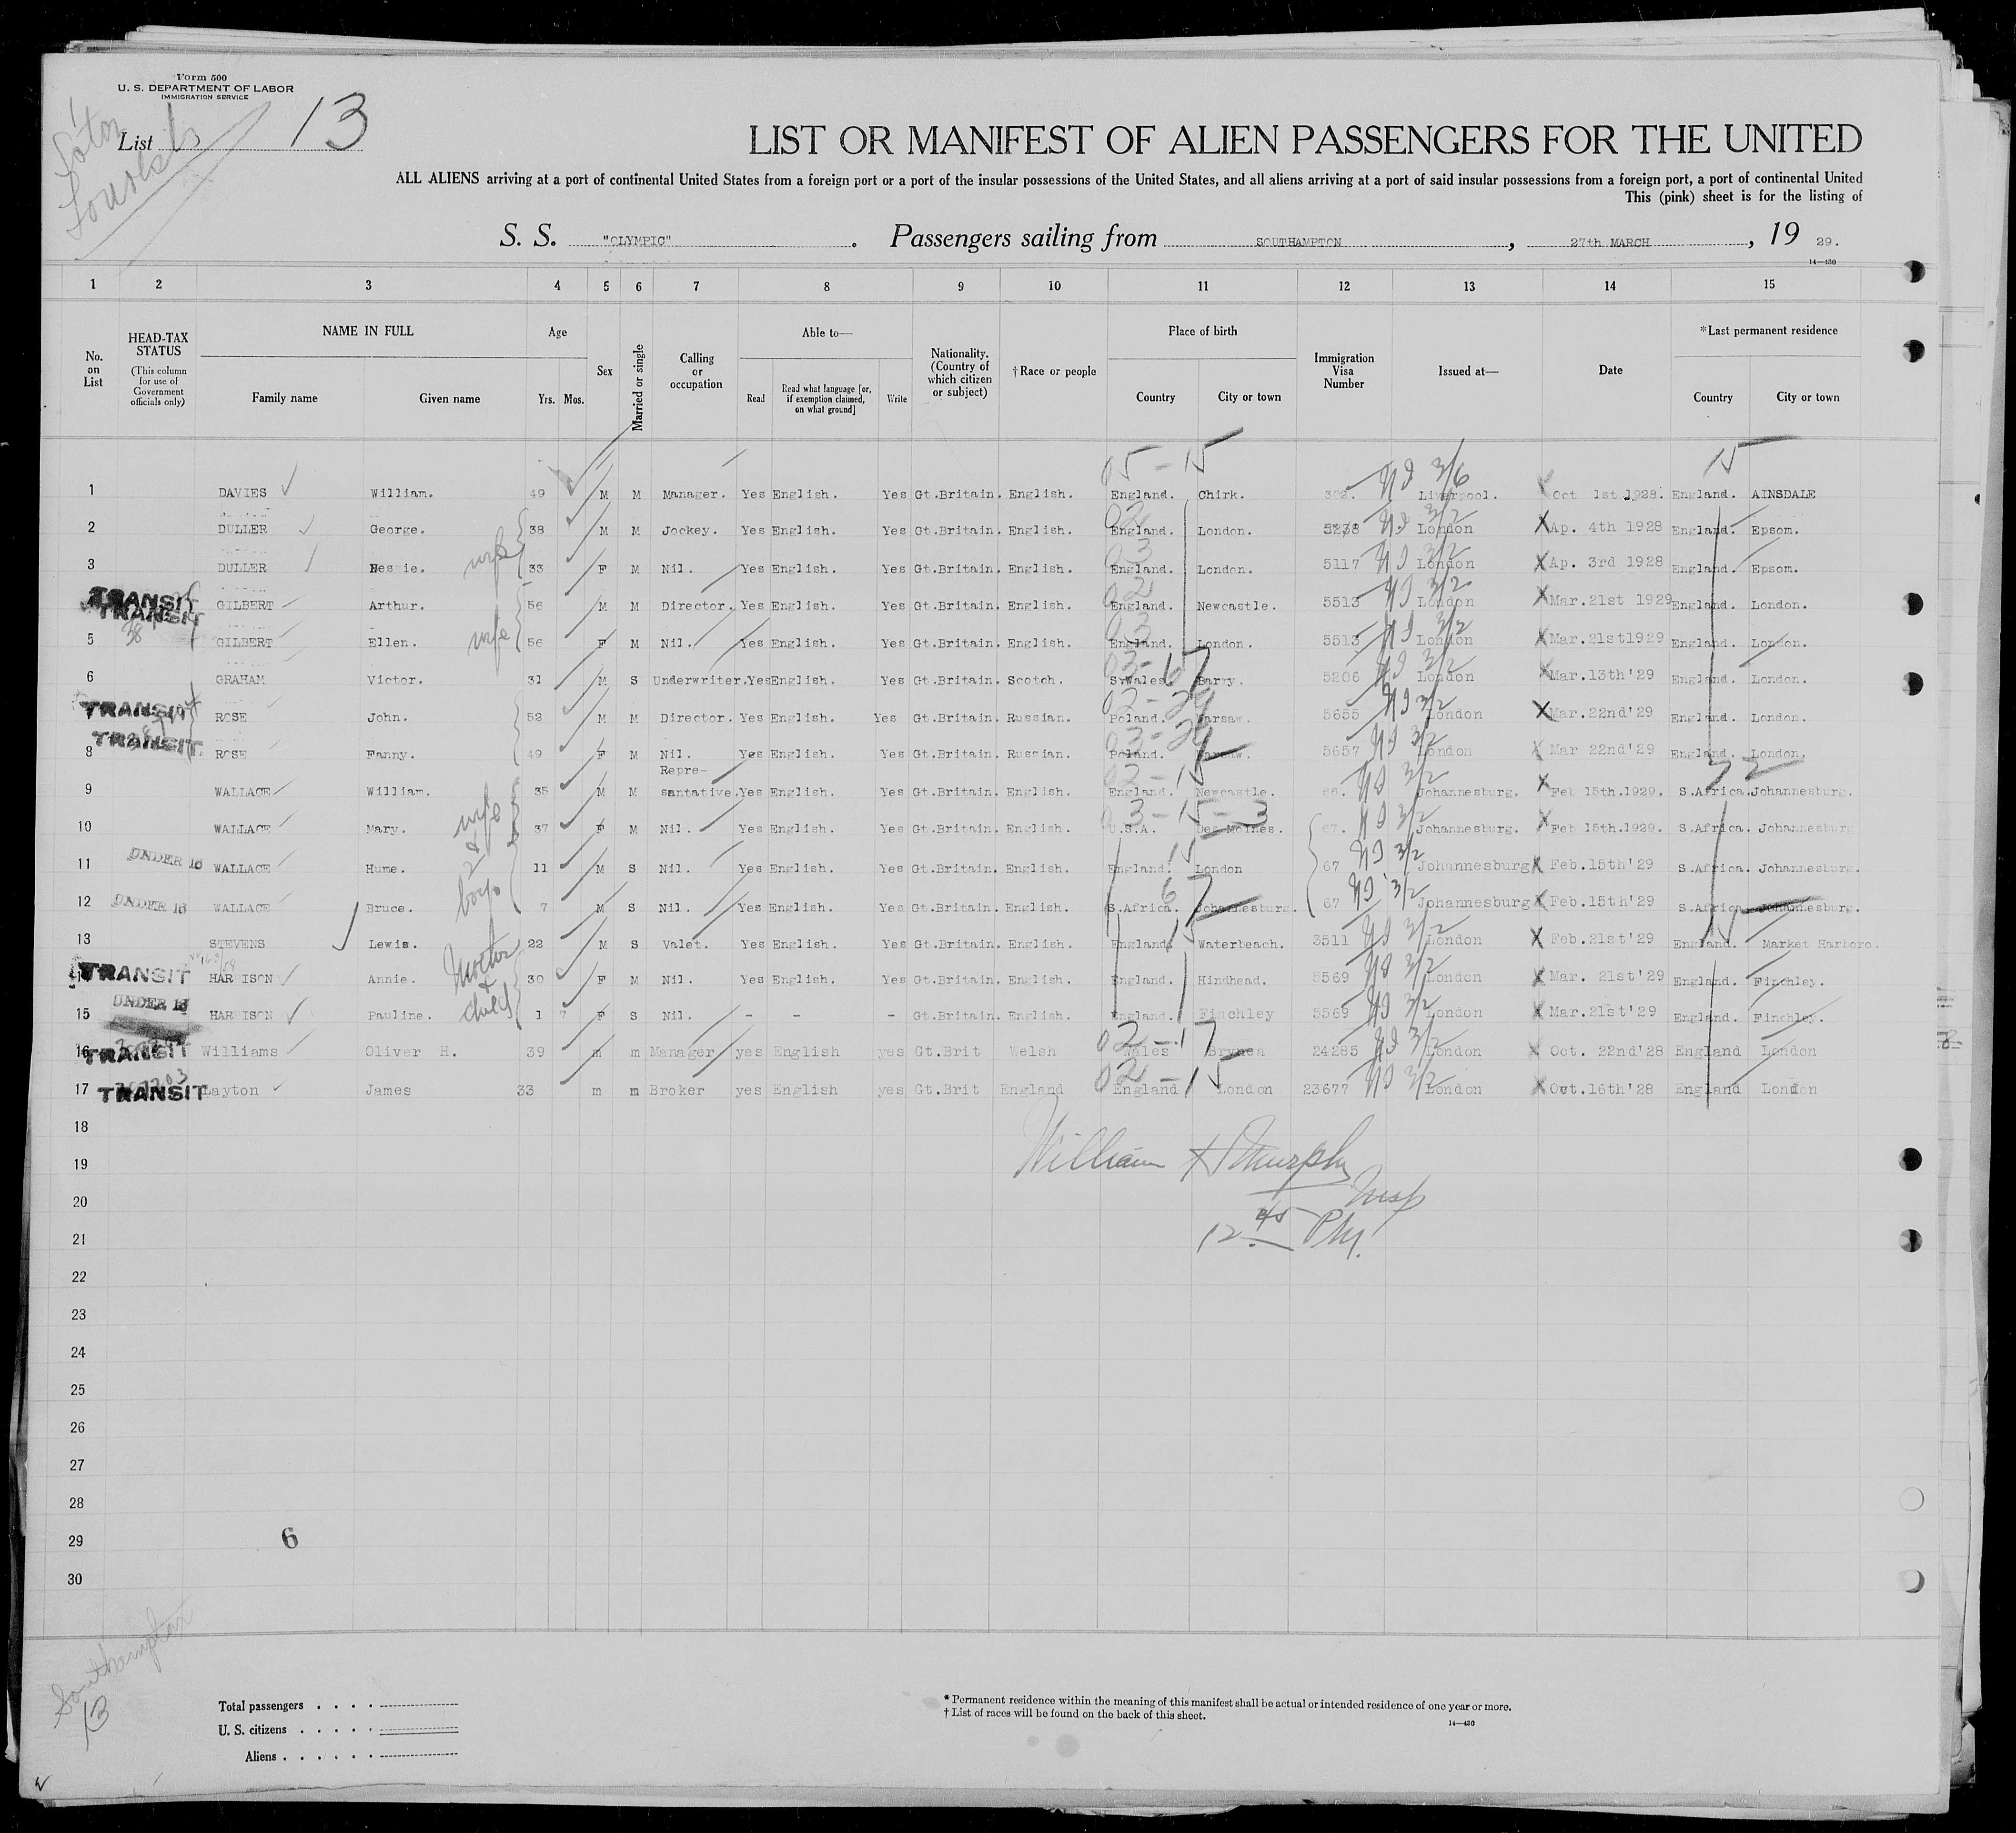 Form 500
U. S. DEPARTMENT OF LABOR
IMMIGRATION SERVICE
List 13
LIST OR MANIFEST OF ALIEN PASSENGERS FOR THE UNITED
ALL ALIENS arriving at a port of continental United States from a foreign port or a port of the insular possessions of the United States, and all aliens arriving at a port of said insular possessions from a foreign port, a port of continental United
This (pink) sheet is for the listing of
S. S. "OLYMPIC". Passengers sailing from SOUTHAMPTON, 27th MARCH, 19 29.
14—430
1 2 3 4 5 6 7 8 9 10 11 12 13 14 15
No. on List
HEAD-TAX STATUS
(This column for use of Government officials only)
NAME IN FULL
Family name Given name
Age
Yrs. Mos.
Sex
Married or single
Calling or occupation
Able to—
Read Read what language [or, if exemption claimed, on what ground] Write
Nationality. (Country of which citizen or subject)
† Race or people
Place of birth
Country City or town
Immigration Visa Number
Issued at—
Date
* Last permanent residence
Country City or town
05-15 3/6 15
1 DAVIES William. 49 M M Manager. Yes English. Yes Gt.Britain. English. England. Chirk. 302. Liverpool. Oct 1st 1928. England. AINSDALE
2 DULLER George. 38 M M Jockey. Yes English. Yes Gt.Britain. English. England. London. 5238 London Ap. 4th 1928 England. Epsom.
wife
3 DULLER Bessie. 33 F M Nil. Yes English. Yes Gt.Britain. English. England. London. 5117 London Ap. 3rd 1928 England. Epsom.
TRANSIT GILBERT Arthur. 56 M M Director. Yes English. Yes Gt.Britain. English. England. Newcastle. 5513 London Mar.21st 1929 England. London.
TRANSIT
wife
5 GILBERT Ellen. 56 F M Nil. Yes English. Yes Gt.Britain. English. England. London. 5513 London Mar.21st1929 England. London.
6 GRAHAM Victor. 31 M S Underwriter. Yes English. Yes Gt.Britain. Scotch. S.Wales Barry. 5206 London Mar.13th'29 England. London.
TRANSIT ROSE John. 52 M M Director. Yes English. Yes Gt.Britain. Russian. Poland. Warsaw. 5655 London Mar.22nd'29 England. London.
TRANSIT
8 ROSE Fanny. 49 F M Nil. Yes English. Yes Gt.Britain. Russian. Poland. Warsaw. 5657 London Mar 22nd'29 England. London.
9 WALLACE William. 35 M M Repre-santative. Yes English. Yes Gt.Britain. English. England. Newcastle. 66. Johannesburg. Feb 15th.1929. S.Africa. Johannesburg.
wife & 2 boys
10 WALLACE Mary. 37 F M Nil. Yes English. Yes Gt.Britain. English. U.S.A. Des Moines. 67. Johannesburg. Feb 15th.1929. S.Africa. Johannesburg
11 UNDER 16 WALLACE Hume. 11 M S Nil. Yes English. Yes Gt.Britain. English. England. London 67 Johannesburg Feb.15th'29 S.Africa. Johannesburg.
12 UNDER 16 WALLACE Bruce. 7 M S Nil. Yes English. Yes Gt.Britain. English. S.Africa. Johannesburg. 67 Johannesburg Feb.15th'29 S.Africa. Johannesburg.
13 STEVENS Lewis. 22 M S Valet. Yes English. Yes Gt.Britain. English. England. Waterbeach. 3511 London Feb.21st'29 England. Market Harboro.
TRANSIT HARRISON Annie. 30 F M Nil. Yes English. Yes Gt.Britain. English. England. Hindhead. 5569 London Mar. 21st'29 England. Finchley.
& child
UNDER 16
15 HARRISON Pauline. 1 7 F S Nil. - - - Gt.Britain. English. England. Finchley 5569 London Mar.21st'29 England. Finchley.
16 TRANSIT Williams Oliver H. 39 m m Manager yes English yes Gt.Brit Welsh Wales 24285 London Oct. 22nd'28 England London
17 TRANSIT Layton James 33 m m Broker yes English yes Gt.Brit England England London 23677 London Oct.16th'28 England London
18
19 William H Murphy
20 Insp
21 12 45 PM.
22
23
24
25
26
27
28
29 6
30
Southampton
13
Total passengers
U. S. citizens
Aliens
* Permanent residence within the meaning of this manifest shall be actual or intended residence of one year or more.
† List of races will be found on the back of this sheet.
14—430